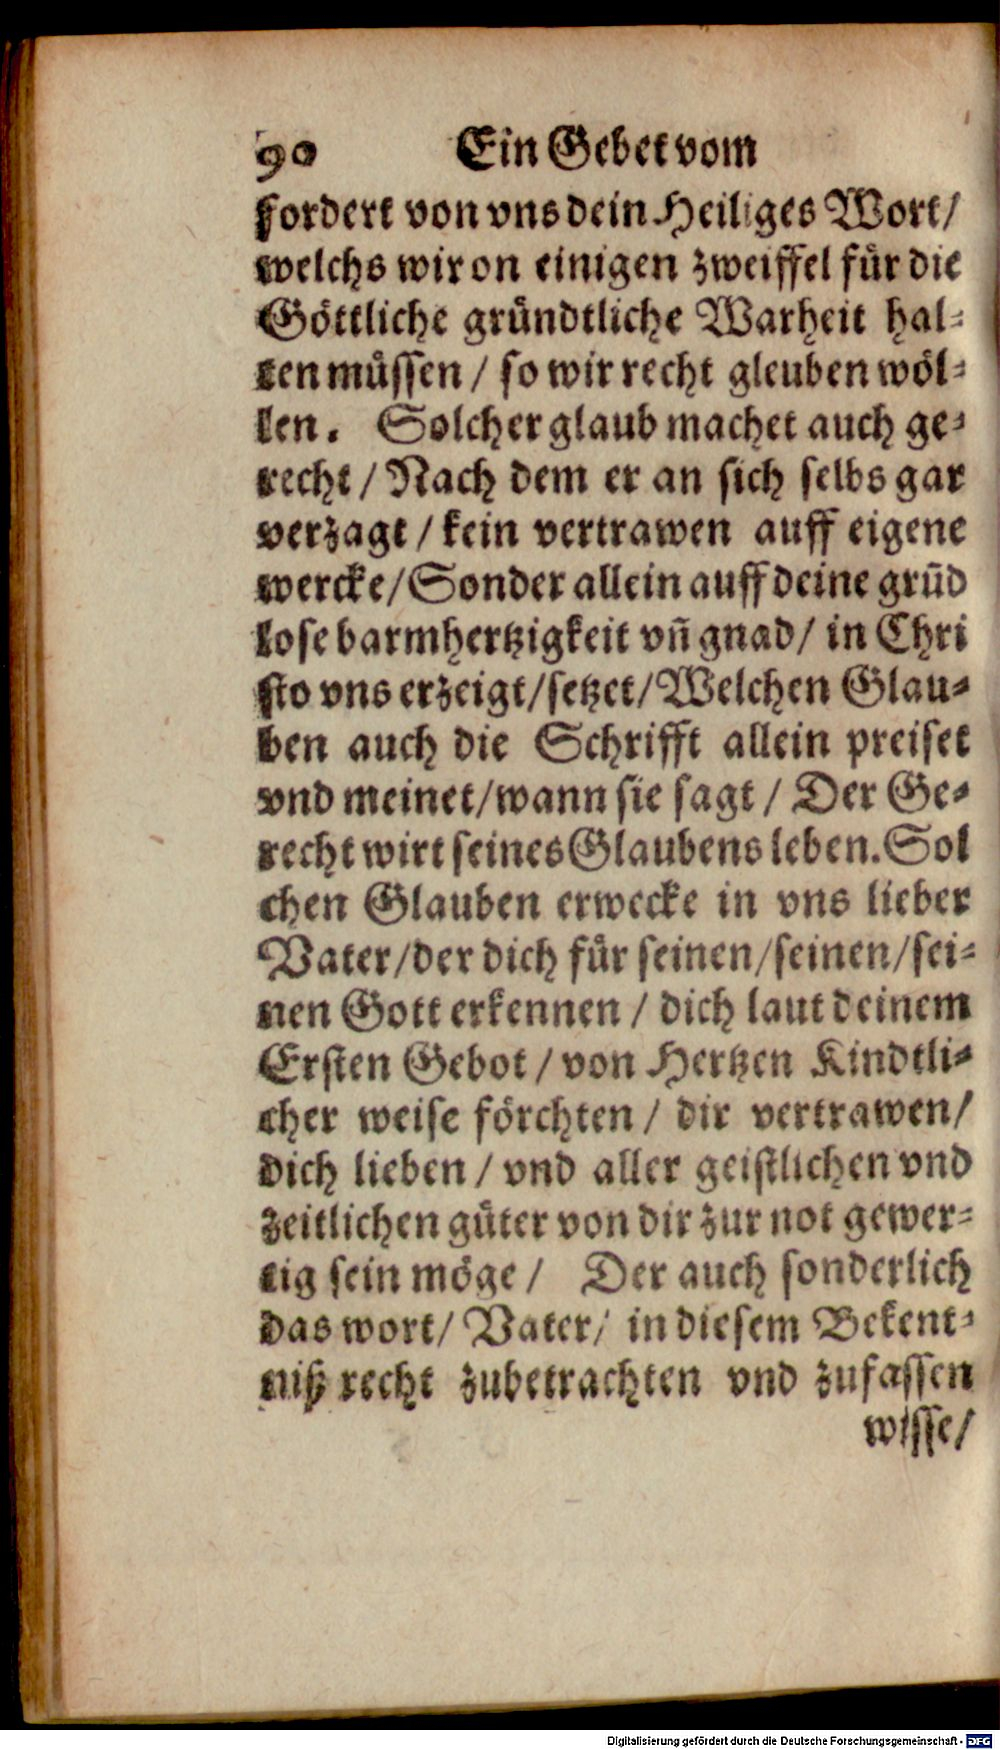 90 Ein Gebet vom
fordert von vns dein Heiliges Wort/
welchs wir on einigen zweiffel für die
Göttliche gründtliche Warheit hal-
ten müssen / so wir recht gleuben wöl-
len. Solcher glaub machet auch ge-
recht / Nach dem er an sich selbs gar
verzagt / kein vertrawen auff eigene
wercke/ Sonder allein auff deine grũd
lose barmhertzigkeit vñ gnad/ in Chri
sto vns erzeigt/ setzet/ Welchen Glau-
ben auch die Schrifft allein preiset
vnd meinet/ wann sie sagt / Der Ge-
recht wirt seines Glaubens leben. Sol
chen Glauben erwecke in vns lieber
Vater/ der dich für seinen/ seinen/ sei-
nen Gott erkennen / dich laut deinem
Ersten Gebot / von Hertzen Kindtli-
cher weise förchten / dir vertrawen/
dich lieben / vnd aller geistlichen vnd
zeitlichen güter von dir zur not gewer-
tig sein möge / Der auch sonderlich
das wort/ Vater/ in diesem Bekent-
niß recht zubetrachten vnd zufassen
wisse/
Digitalisierung gefördert durch die Deutsche Forschungsgemeinschaft - DFG